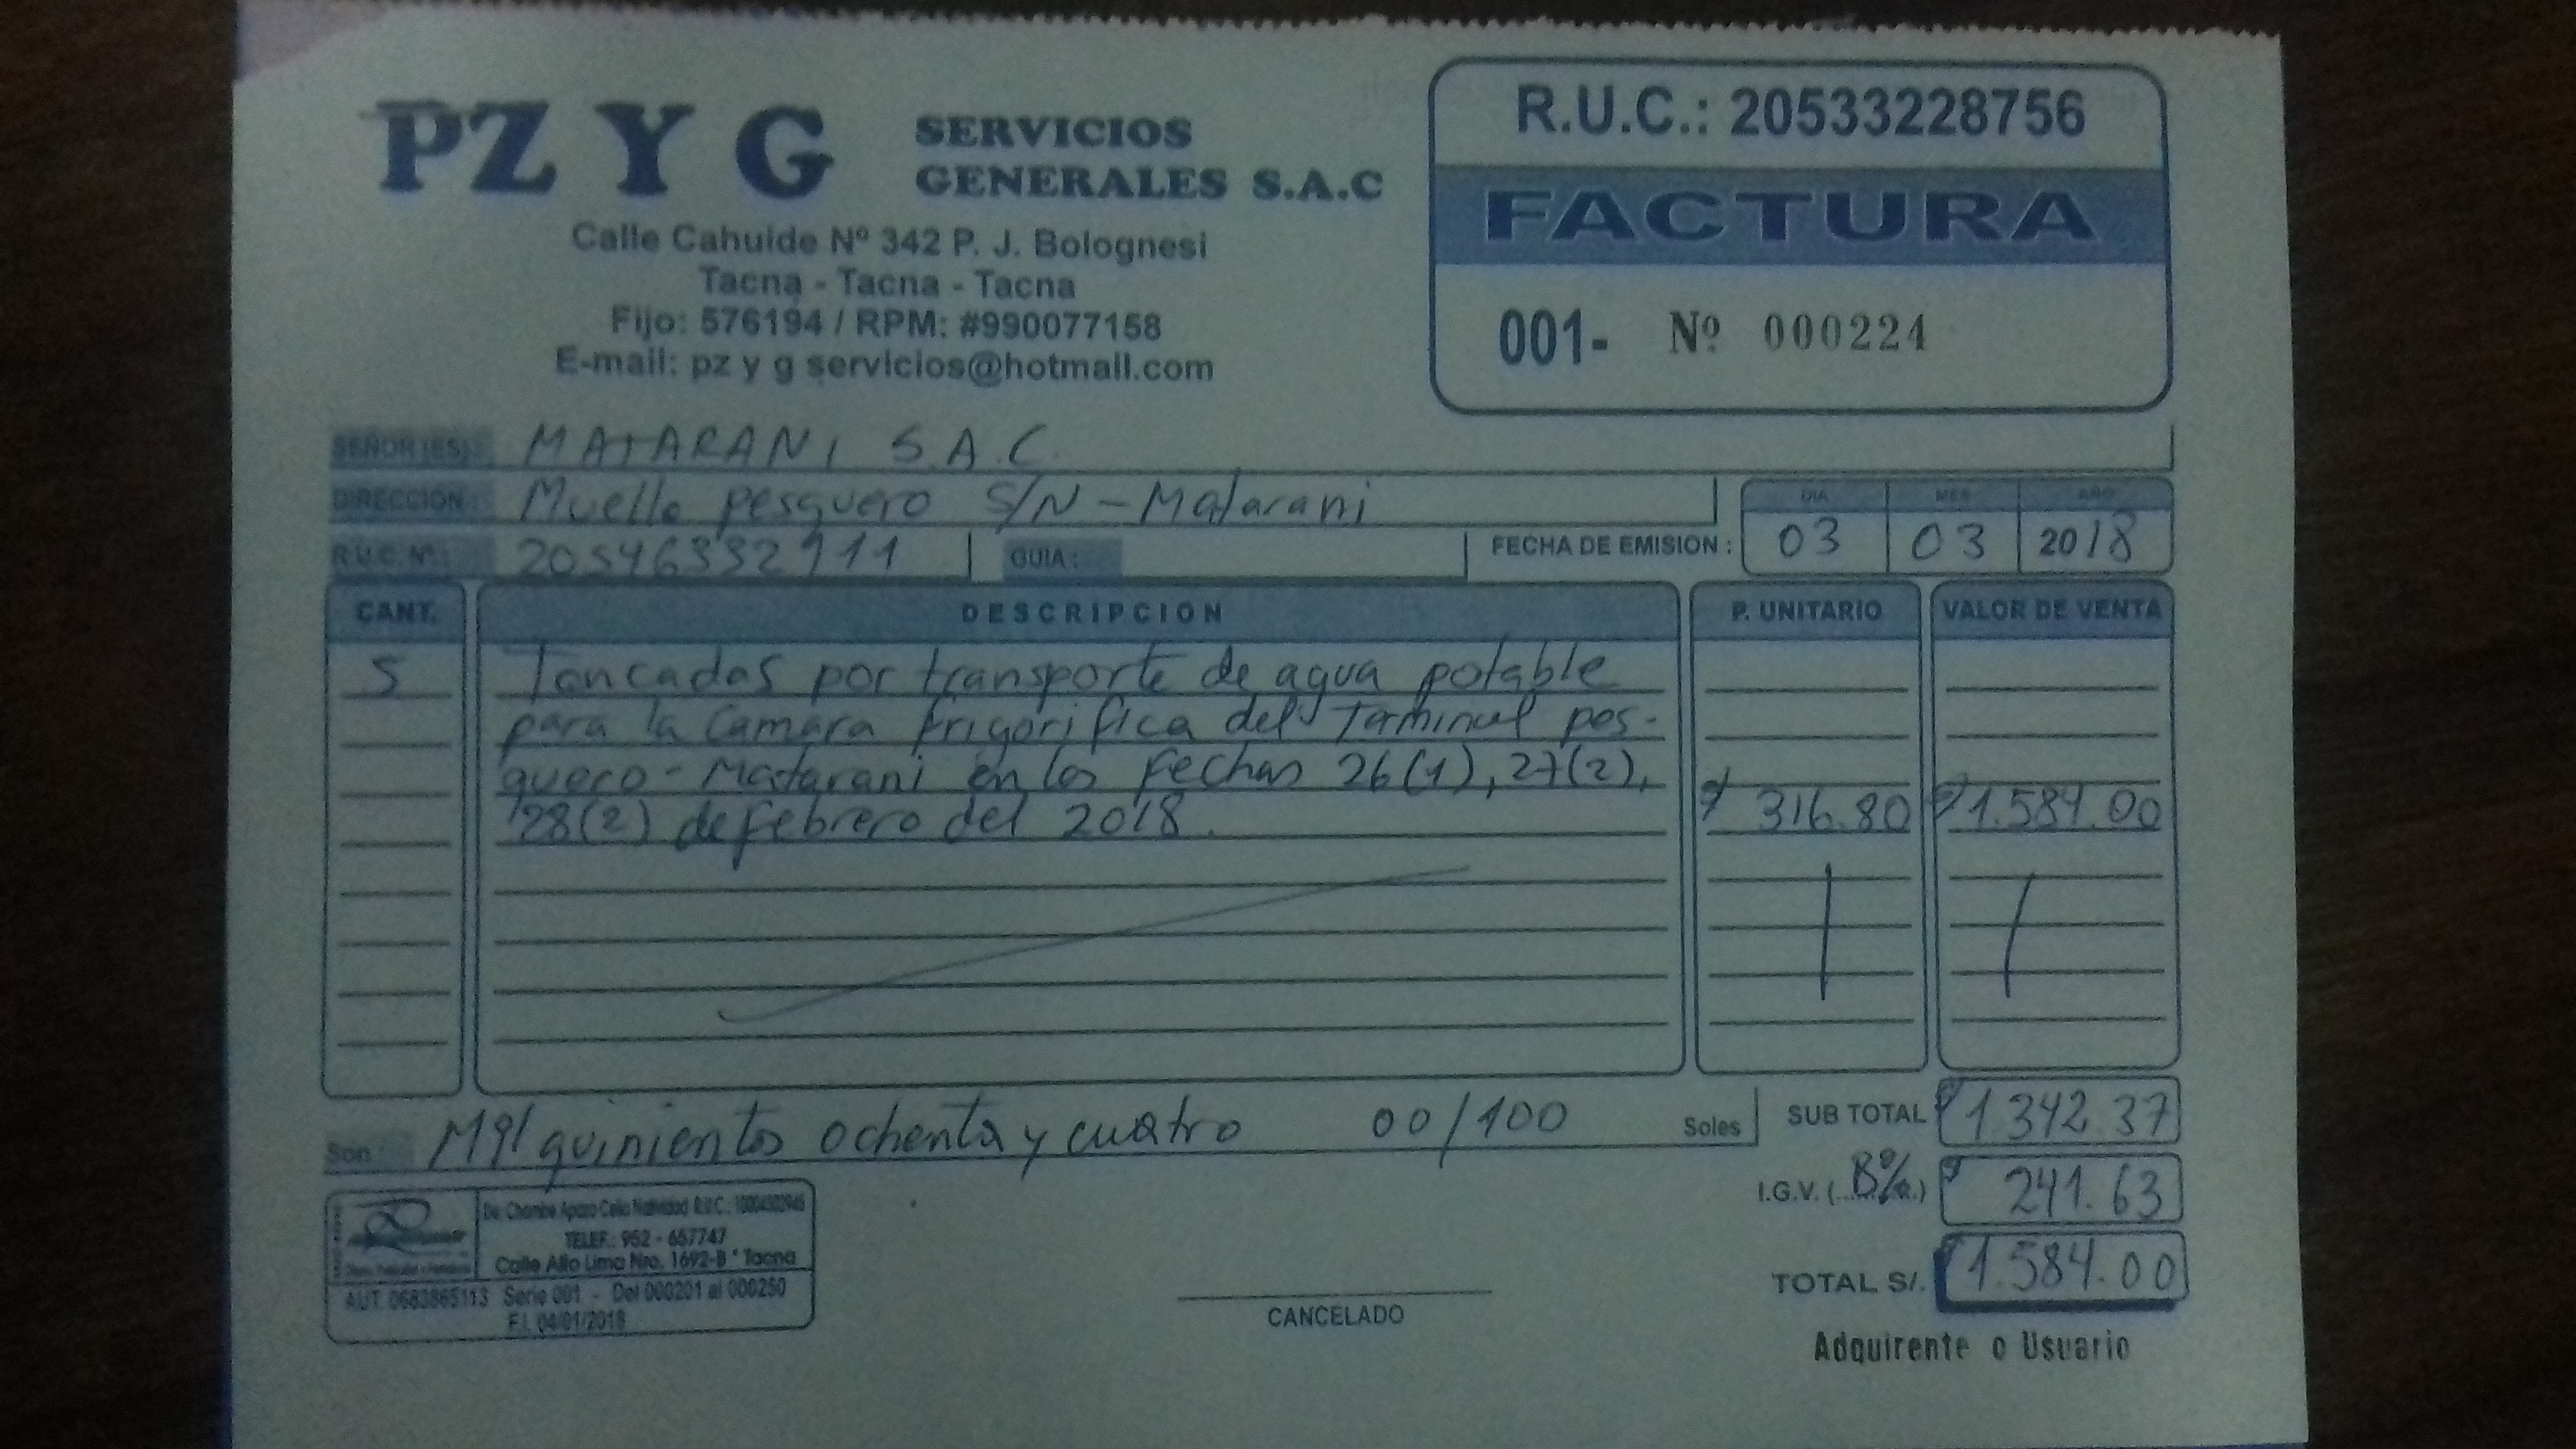 PZ Y G SERVICIOS GENERALES S.A.C
Calle Cahuide Nº 342 P. J. Bolognesi
Tacna - Tacna - Tacna
Fijo: 576194 / RPM: #990077158
E-mail: pz y g servicios@hotmail.com
R.U.C.: 20533228756
FACTURA
001- Nº 000224
SEÑOR(ES): MATARANI S.A.C.
DIRECCION: Muelle pesquero S/N - Matarani
R.U.C. Nº: 20546332911 GUIA:
FECHA DE EMISION: DIA MES AÑO
03 03 2018
CANT. DESCRIPCION P. UNITARIO VALOR DE VENTA
5 Tancadas por transporte de agua potable
para la Camara frigorifica del Terminal pes-
quero - Matarani en las fechas 26(1), 27(2),
28(2) de febrero del 2018. 316.80 1.584.00
Son: Mil quinientos ochenta y cuatro 00/100 Soles
SUB TOTAL 1 342.37
I.G.V. ( %) 241.63
TOTAL S/. 1.584.00
De: Chambe Apaza Celia Natividad R.U.C.:
TELEF.: 952 - 657747
Calle Alto Lima Nro. 1692-B * Tacna
AUT. 0683865113 Serie 001 - Del 000201 al 000250
F.I. 04/01/2018
CANCELADO
Adquirente o Usuario